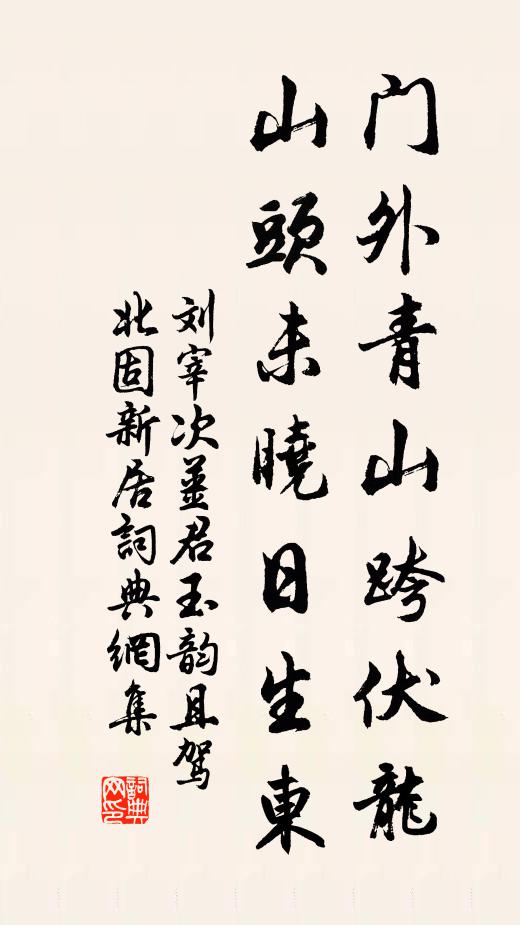 门外青山跨伏龍
山頭未曉日生東
刘宰次姜君玉韵且驾
北固新居詞典網集
詞典
网印